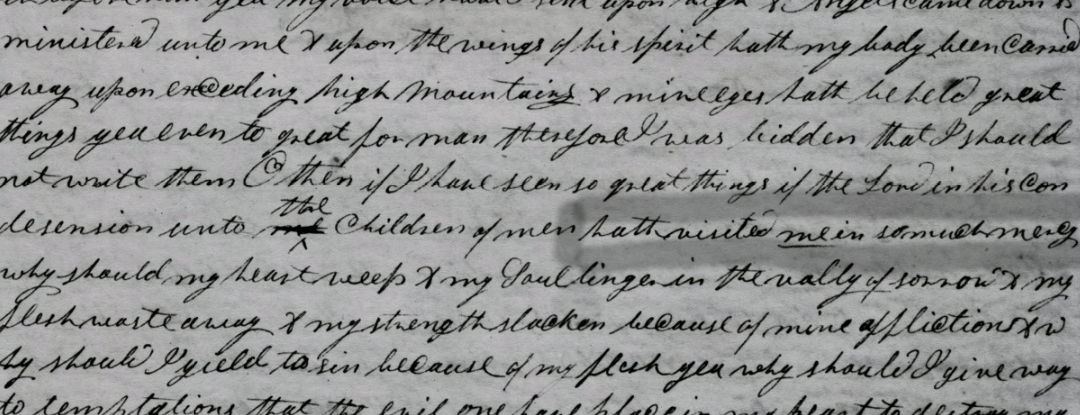 yea my voice have I sent upon high & Angels came down &
ministerd unto me & upon the wings of his spirit hath my body been carried
away upon exceeding high mountains & mine eyes hath beheld great
things yea even to great for man therefore I was bidden that I should
not write them O then if I have seen so great things if the Lord in his con
desension unto the Children of men hath visited me in so much mercy
why should my heart weep & my Soul linger in the vally of sorrow & my
flesh waste away & my strength slacken because of mine afflictions & w
hy should I yield to sin because of my flesh yea why should I give way
to temptations that the evil one have place in my heart to destroy my